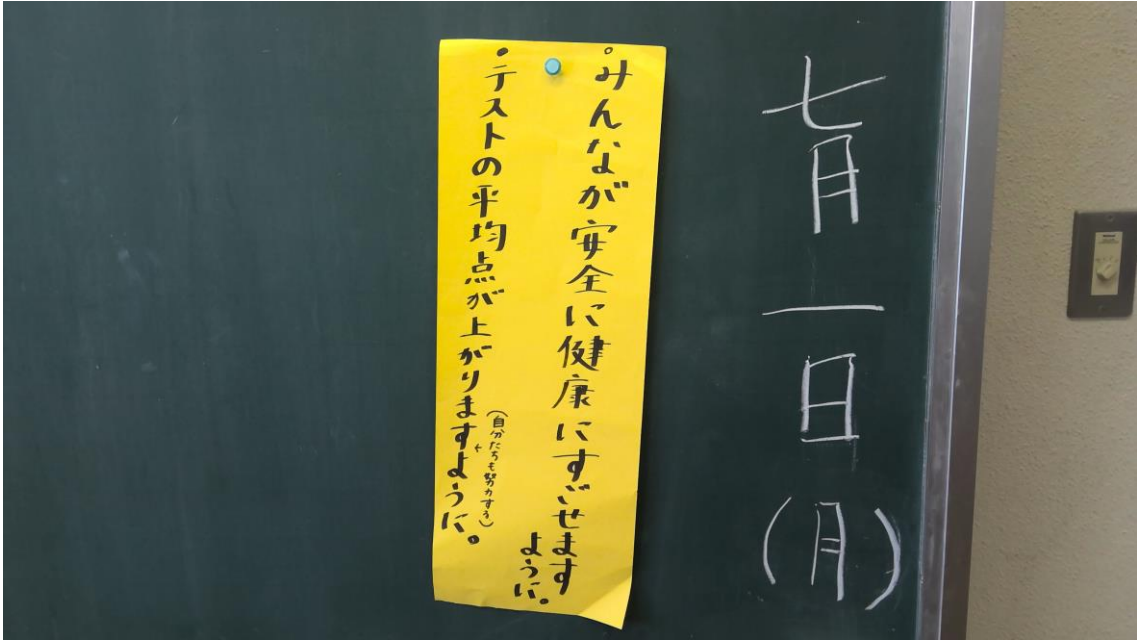 七月一日(月)
・みんなが安全に健康にすごせます
ように。
・テストの平均点が上がりますように。
(自分たちも努力する)